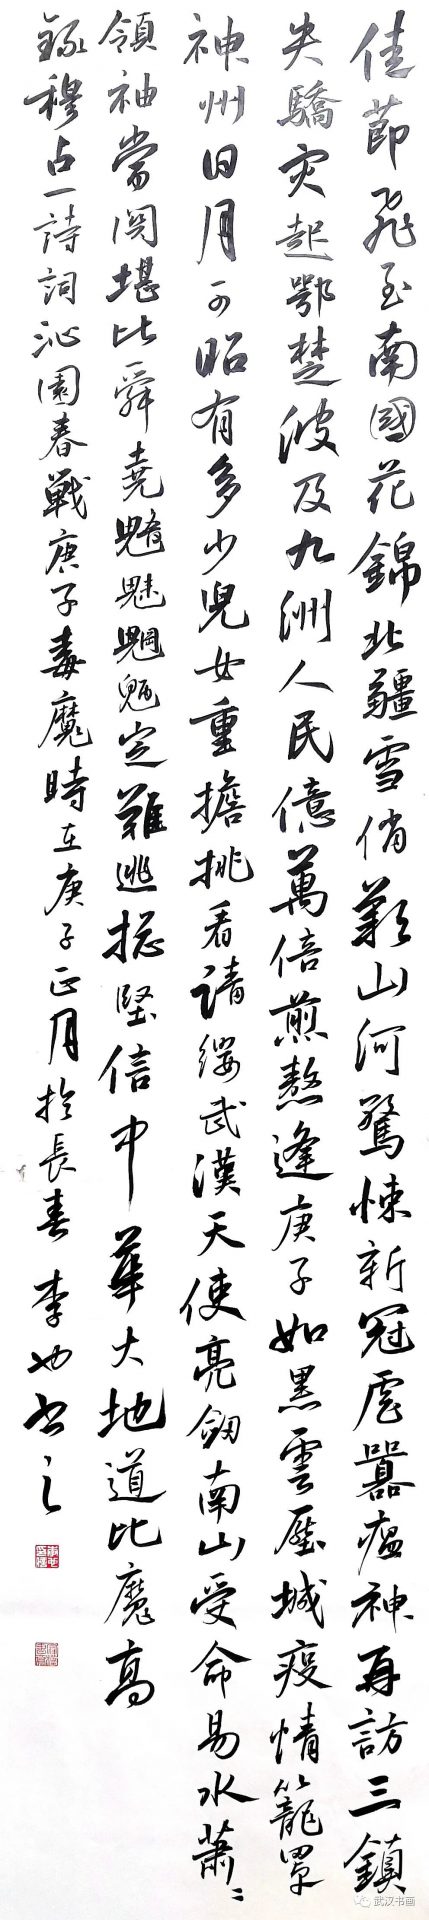 佳節飛至南國花錦北疆雪俏歎山河驚悚新冠虐囂瘟神再訪三鎮
失驕灾起鄂楚波及九洲人民億萬倍煎熬逢庚子如黑雲壓城疫情籠罩
神州日月可昭有多少兒女重擔挑看請纓武漢天使亮劍南山受命易水蕭〻
領袖當関堪比舜堯魑魅魍魎定難逃挖堅信中華大地道比魔高
錄穆占一詩詞沁園春戰庚子毒魔時在庚子正月於長春李也書之
武汉书画